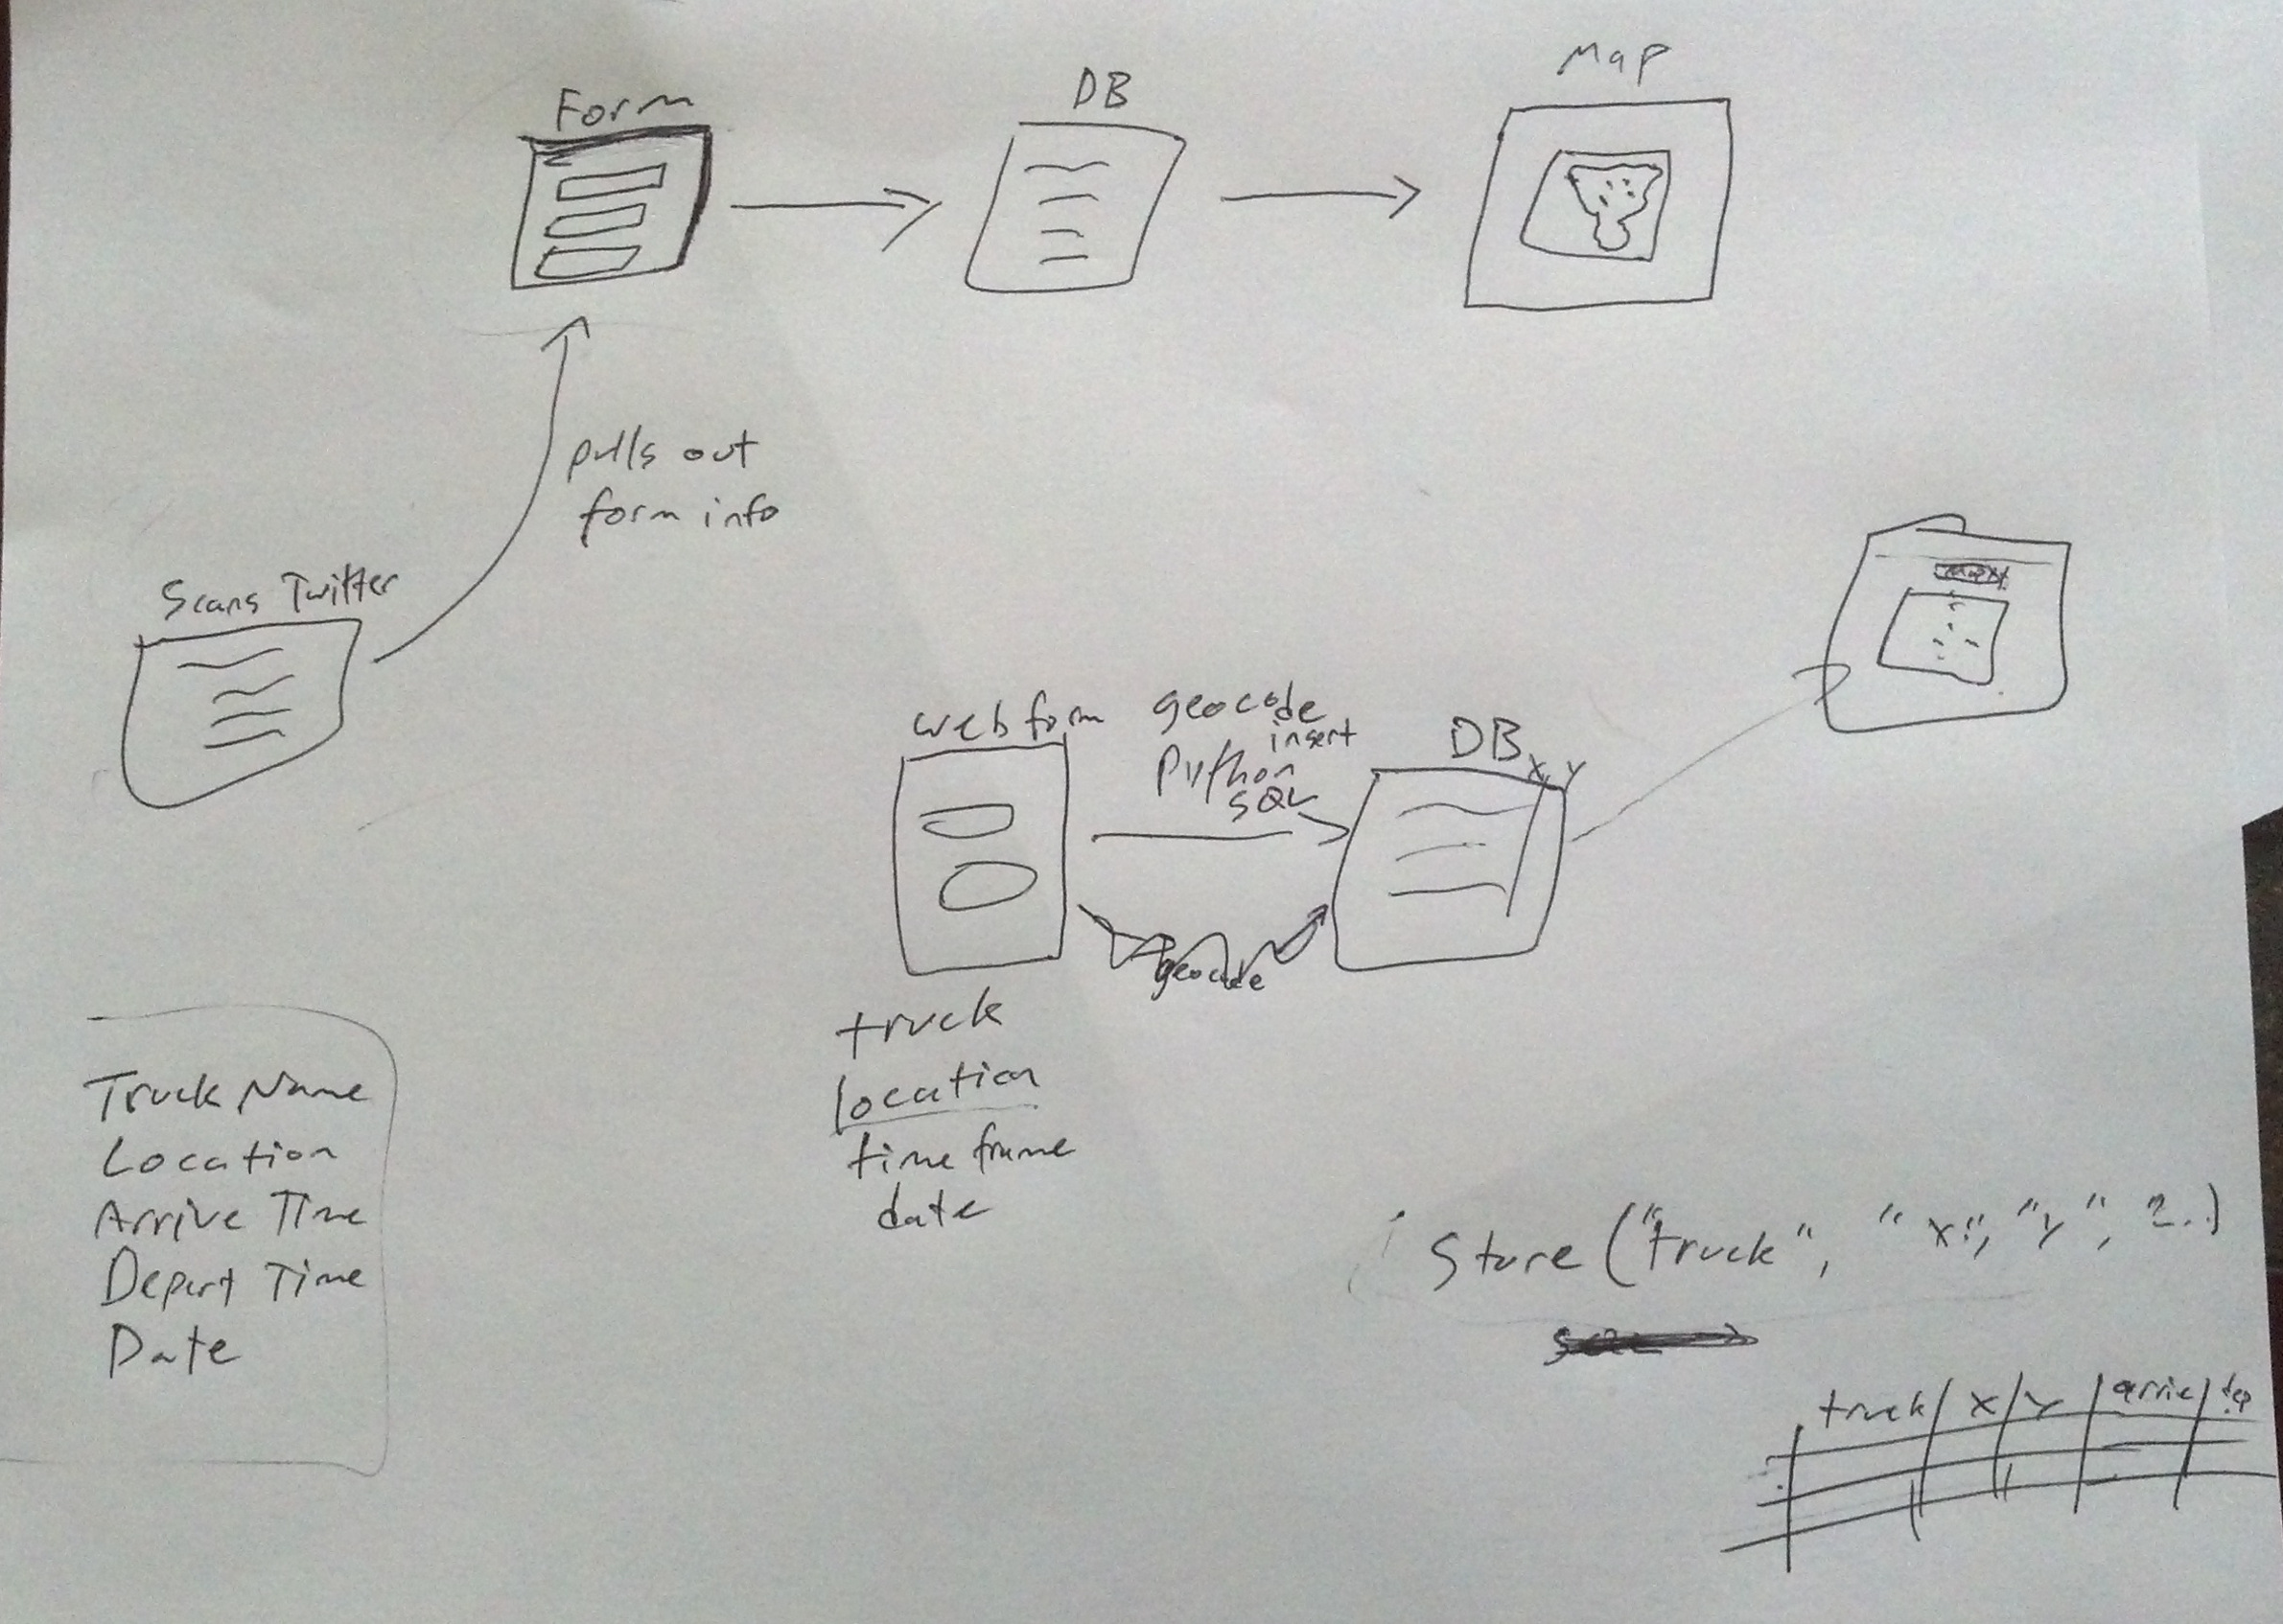 Form
DB
Map
pulls out
form info
Scans Twitter
web form
geocode
insert
Python
SQL
DB
X, Y
geocode
truck
location
time frame
date
Truck Name
Location
Arrive Time
Depart Time
Date
Store ("truck", "x", "y", 2..)
truck X Y arrive